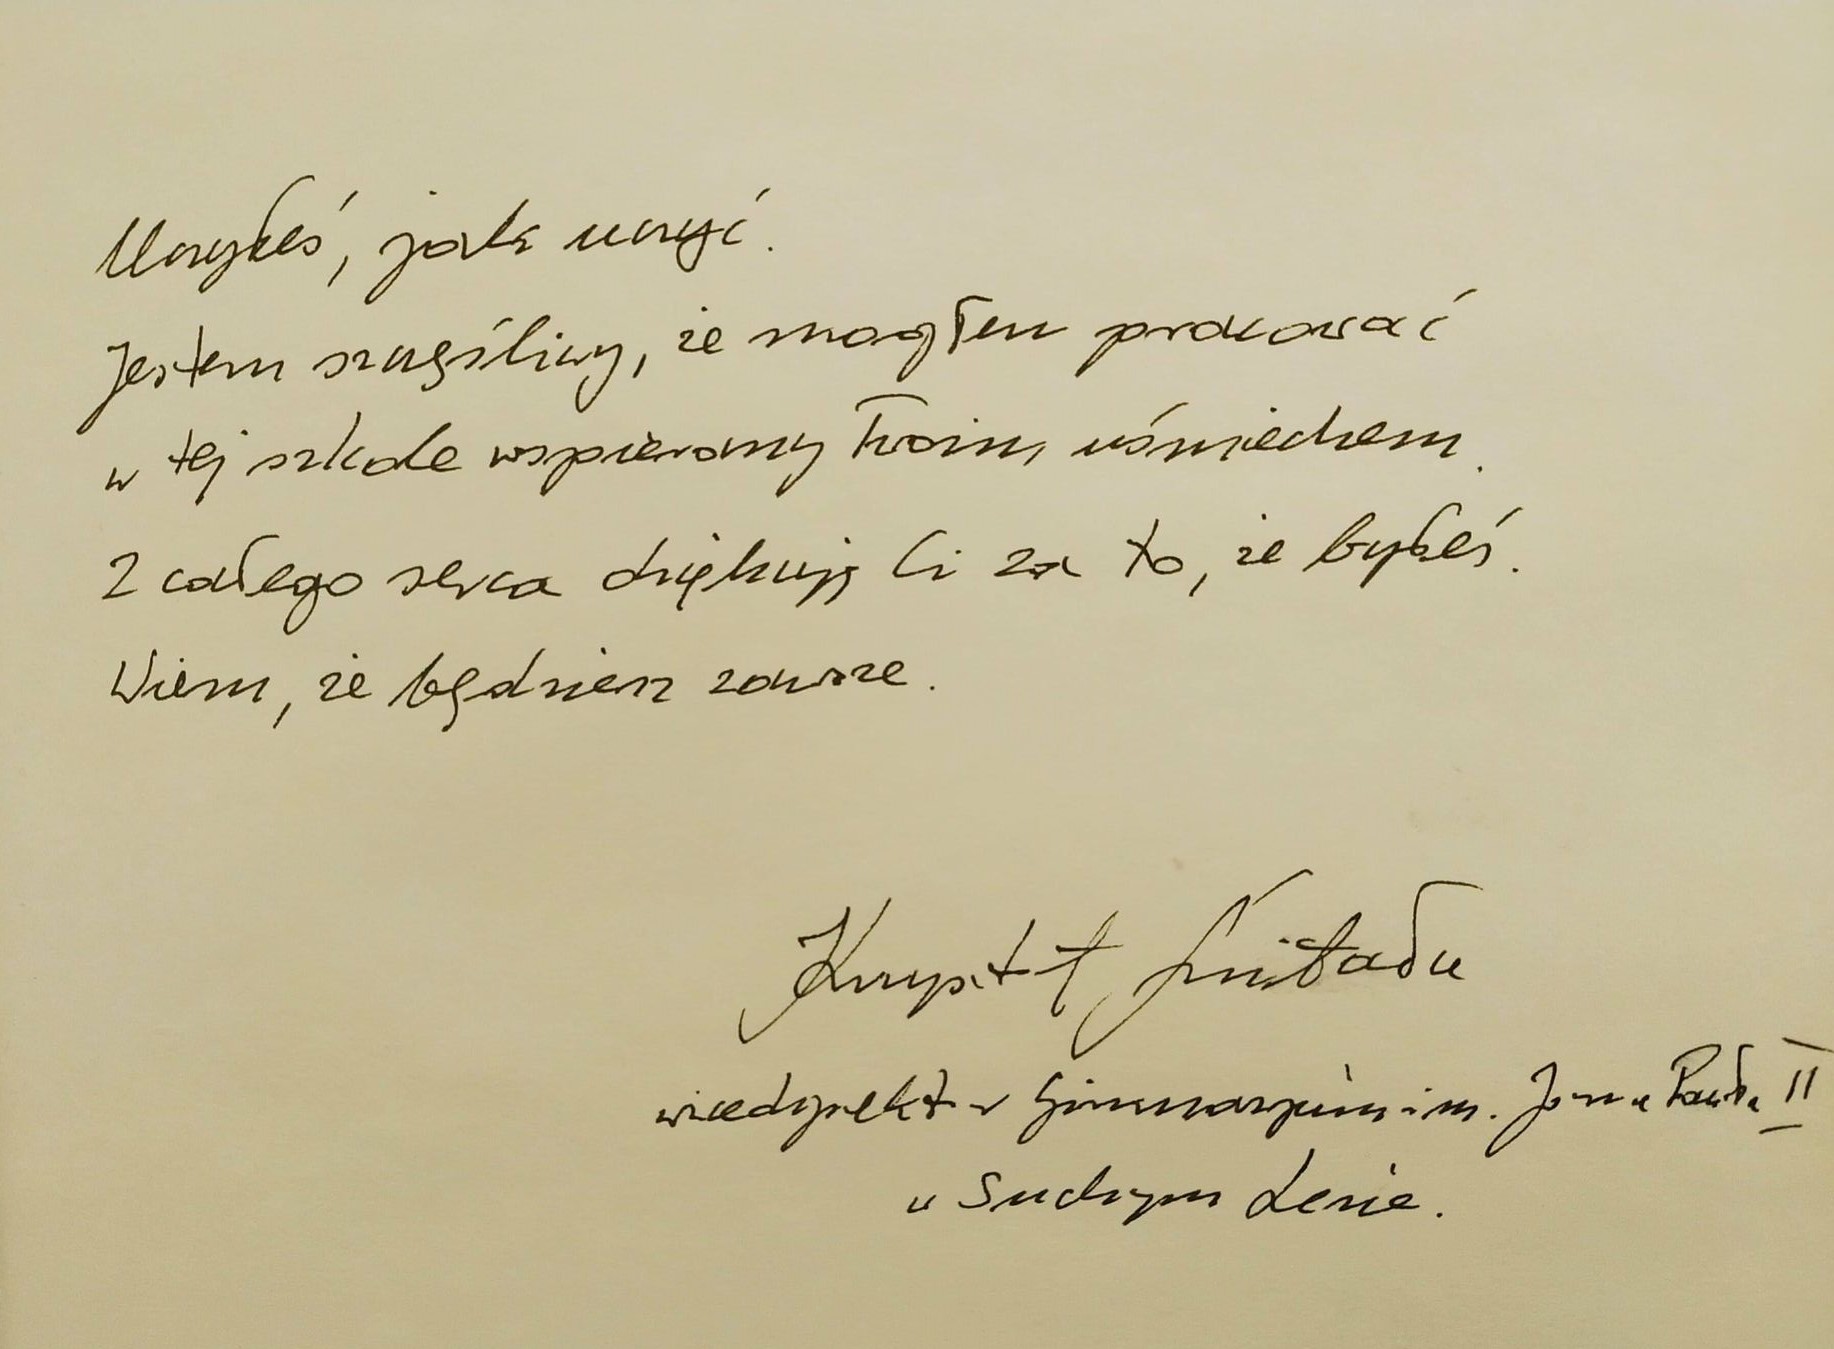 Uczyłeś, jak uczyć.
Jestem szczęśliwy, że mogłem pracować
w tej szkole wspierany Twoim uśmiechem.
Z całego serca dziękuję Ci za to, że byłeś.
Wiem, że będziesz zawsze.
wicedyrektor Gimnazjum im. Jana Pawła II
w Suchym Lesie.